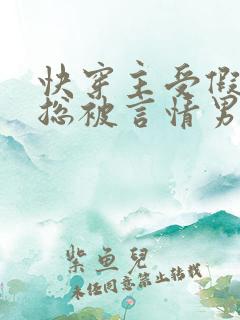 快穿主受假
总被言情男
紫鱼儿
未经同意禁止转载